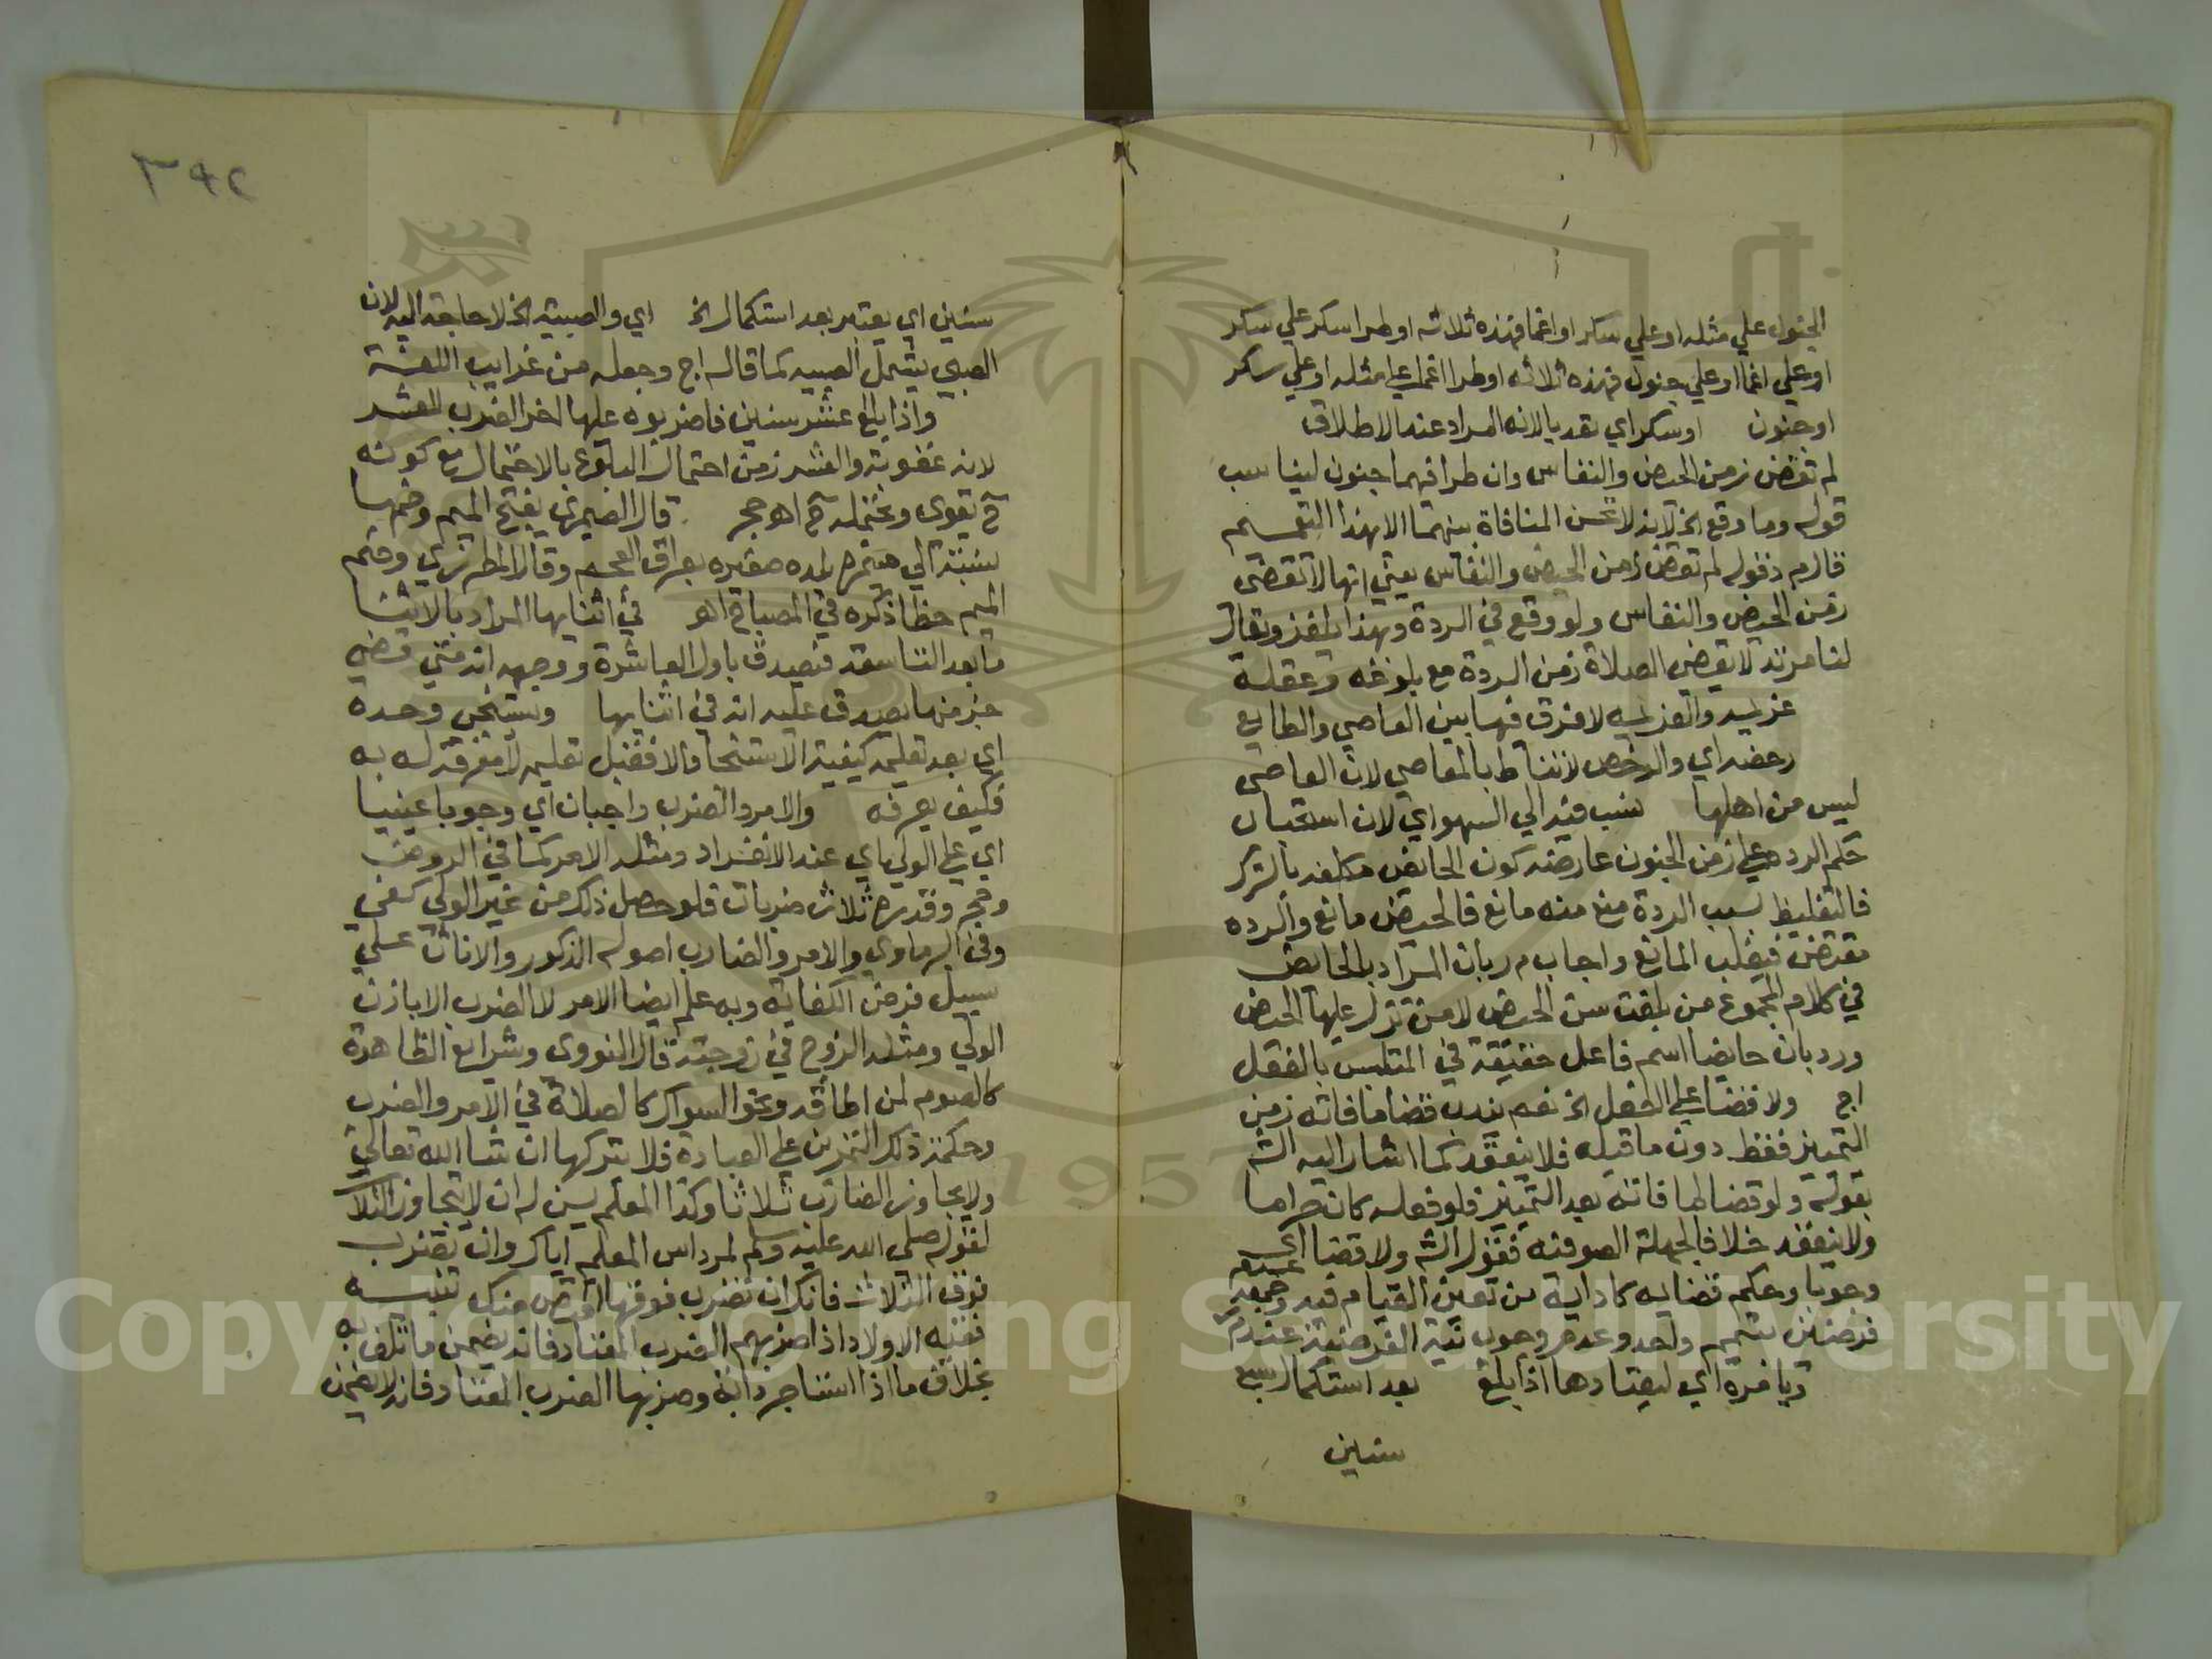 الجنون علي مثله او علي سكر او اغما فهذه ثلاثه او طرا سكر علي سكر
او علي اغما او علي جنون فهذه ثلاثه او طرا اغما علي مثله او علي سكر
او جنون او سكر اي تعديا لانه المراد عند الاطلاق
لم تقض زمن الحيض والنفاس وان طرا فيهما جنون ليناسب
قوله وما وقع الخ لانه لا تحسن المنافاة بينهما الا بهذا التعميم
قال م ر قوله لم تقض زمن الحيض والنفاس يعني انها لا تقضي
زمن الحيض والنفاس ولو وقع في الردة وبهذا يلغز ويقال
لنا مرتد لا يقضي الصلاة زمن الردة مع بلوغه وعقله
عزيمه والعزيمه لا فرق فيها بين العاصي والطايع
رخصه اي والرخص لا تناط بالمعاصي لان العاصي
ليس من اهلها نسب فيه الي السهو اي لان استصحاب
حكم الرده علي زمن الجنون عارضه كون الحائض مكلفه بالترك
فالتغليظ بسبب الردة منع منه مانع فالحيض مانع والرده
تقتضي فيغلب المانع واجاب م ر بان المراد بالحائض
في كلام المجموع من بلغت سن الحيض لا من نزل عليها الحيض
ورد بان حايضا اسم فاعل حقيقة في المتلبس بالفعل
اج ولا قضا علي الطفل الخ نعم يندب قضا ما فاته زمن
التمييز فقط دون ما قبله فلا ينعقد كما اشار اليه الش
بقوله ولو قضا لما فاته بعد التمييز فلو فعله كان حراما
ولا ينعقد خلافا لجهلة الصوفيه فقول الش ولا قضا اي
وجوبا وحكم قضايه كادايه من تعين القيام فيه وجمعه
فرضين بتيمم واحد وعدم وجوب نية الفرضية عند م ر
ويامره اي ليعتادها اذا بلغ بعد استكمال سبع
سنين
٣٩٢
سنين اي يعتبر بعد استكمال الخ اي والصبية الخ لا حاجة اليه لان
الصبي يشمل الصبيه كما قال اج وجعله من غرايب اللغة
واذا بلغ عشر سنين فاضربوه عليها اخر الضرب للعشر
لانه عقوبة والعشر زمن احتمال البلوغ بالاحتلام مع كونه
ح يقوي ويحتمله ح اه حجر قال الصيمري بفتح الميم وضمها
نسبة الي صيمره بلده صغيره بعراق العجم وقال المطرزي وضم
الميم خطا ذكره في المصباح اه في اثنايها المراد بالاثنا
ما بعد التاسعه فيصدق باول العاشرة ووجهه انه متي مضي
جزء منها يصدق عليه انه في اثنايها ويستنجي وحده
اي بعد تعليمه كيفية الاستنجا والا فقبل تعليمه لا معرفة له به
فكيف يعرفه والامر والضرب واجبان اي وجوبا عينيا
اي علي الولي اي عند الانفراد ومثله الامر كما في الروض
وحجر وقدره ثلاث ضربات فلو حصل ذلك من غير الولي كفي
وفي البرماوي والامر والضارب اصوله الذكور والاناث علي
سبيل فرض الكفاية وبه علم ايضا الامر لا الضرب الا باذن
الولي ومثله الزوج في زوجته قال النووي وشرايع الظاهرة
كالصوم لمن اطاقه ونحو السواك كالصلاة في الامر والضرب
وحكمة ذلك التمرين علي العبادة فلا يتركها ان شا الله تعالي
ولا يجاوز الضارب ثلاثا وكذا المعلم يسن له ان لا يتجاوز الثلاث
لقوله صلي الله عليه وسلم لمرداس المعلم اياك وان تضرب
فوق الثلاث فانك ان تضرب فوقها اقتص منك تنبيه
فقيه الاولاد اذا ضربهم الضرب المعتاد فانه يضمن ما تلف به
بخلاف ما اذا استاجر دابة وضربها الضرب المعتاد فانه لا يضمن
Copyright © King Saud University
1957